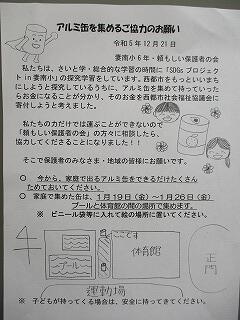 アルミ缶を集めるご協力のお願い
令和5年12月21日
妻南小6年・頼もしい保護者の会
私たちは、さいと学・総合的な学習の時間に「SDGsプロジェクト
in妻南小」の探究学習をしています。西都市をもっといいまち
にしようと探究しているうちに、アルミ缶を集めて持っていった
らお金になることが分かり、そのお金を西都市社会福祉協議会に
寄付しようと考えました。
私たちの力だけでは運ぶことができないので
「頼もしい保護者の会」の方々に相談したら、
協力してくださることになりました!!
そこで保護者のみなさま・地域の皆様にお願いです。
○ 今から、家庭で出るアルミ缶をできるだけたくさん
ためておいてください。
○ 家庭で集めた缶は、1月19日(金)~1月26日(金)
プールと体育館の間の場所で集めます。
※ ビニール袋等に入れて絵の場所に置いてください。
ここです
体育館
プール
正門
運動場
※ 子どもが持ってくる場合は、安全に持ってきてください。